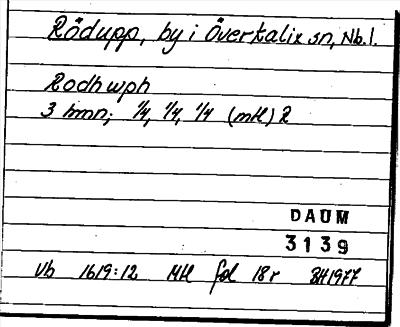 Rödupp, by i Överkalix sn, Nb.l.
Rodhwph
3 hmn; 1/4, 1/4, 1/4 (mtl) R
DAUM
3139
Vb 1619:12 Mtl fol 18r BH1977